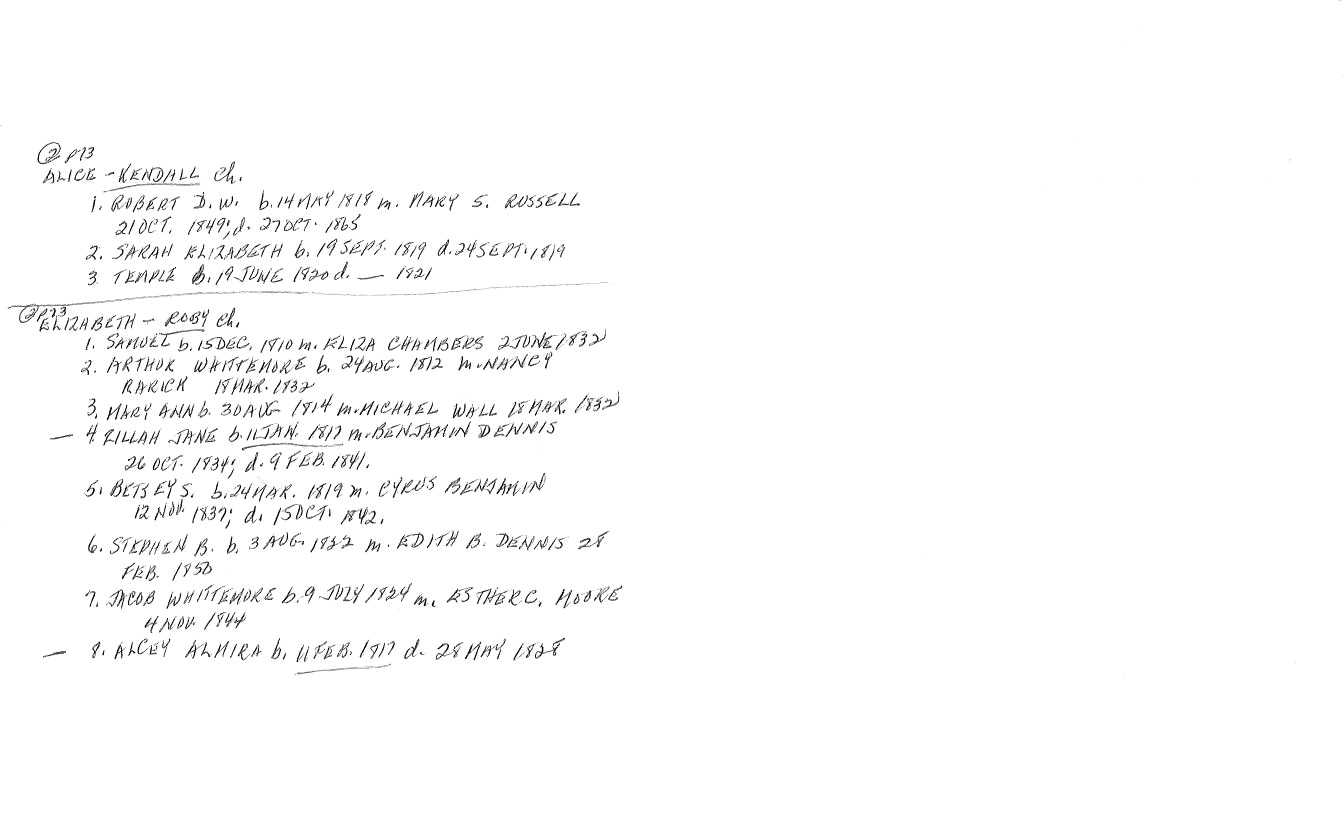 ② P73
ALICE - KENDALL Ch.
1. ROBERT D. W. b. 14 MAY 1818 m. MARY S. RUSSELL
21 OCT. 1849; d. 27 OCT. 1865
2. SARAH ELIZABETH b. 19 SEPT. 1819 d. 24 SEPT. 1819
3 TEMPLE b. 19 JUNE 1820 d. — 1821
② P73
ELIZABETH - ROBY Ch.
1. SAMUEL b. 15 DEC. 1810 m. ELIZA CHAMBERS 2 JUNE 1832
2. ARTHUR WHITTEMORE b. 24 AUG. 1812 m. NANCY
RARICK 18 MAR. 1832
3. MARY ANN b. 30 AUG 1814 m. MICHAEL WALL 18 MAR. 1832
— 4. RILLAH JANE b. 11 JAN. 1817 m. BENJAMIN DENNIS
26 OCT. 1834; d. 9 FEB. 1841.
5. BETSEY S. b. 24 MAR. 1819 m. CYRUS BENJAMIN
12 NOV. 1837; d. 15 OCT. 1842.
6. STEPHEN B. b. 3 AUG. 1822 m. EDITH B. DENNIS 28
FEB. 1850
7. JACOB WHITTEMORE b. 9 JULY 1824 m. ESTHER C. MOORE
4 NOV. 1844
— 8. ALCEY ALMIRA b. 11 FEB. 1817 d. 28 MAY 1828